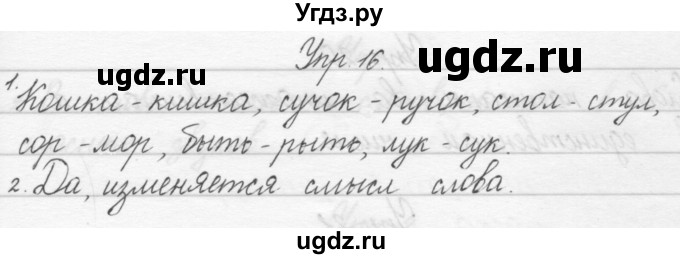 Угдз.ру
Упр 16.
ugdz.ru ugdz.ru
1. Кошка - кишка, сучок - ручок, стол - стул,
сор - мор, быть - рыть, лук - сук.
2. Да, изменяется смысл слова.
ugdz.ru
ugdz.ru